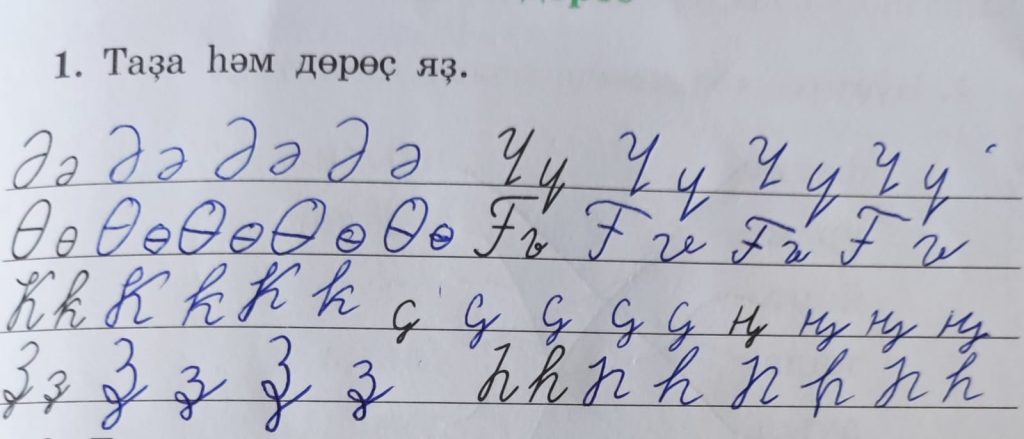 1. Таҙа һәм дөрөҫ яҙ.
Әә Әә Әә Әә Үү Үү Үү Үү
Өө Өө Өө Өө Ғғ Ғғ Ғғ Ғғ
Ҡҡ Ҡҡ Ҡҡ ҫ ҫ ҫ ҫ ҫ ң ң ң ң
Ҙҙ Ҙҙ Ҙҙ Һһ Һһ Һһ Һһ